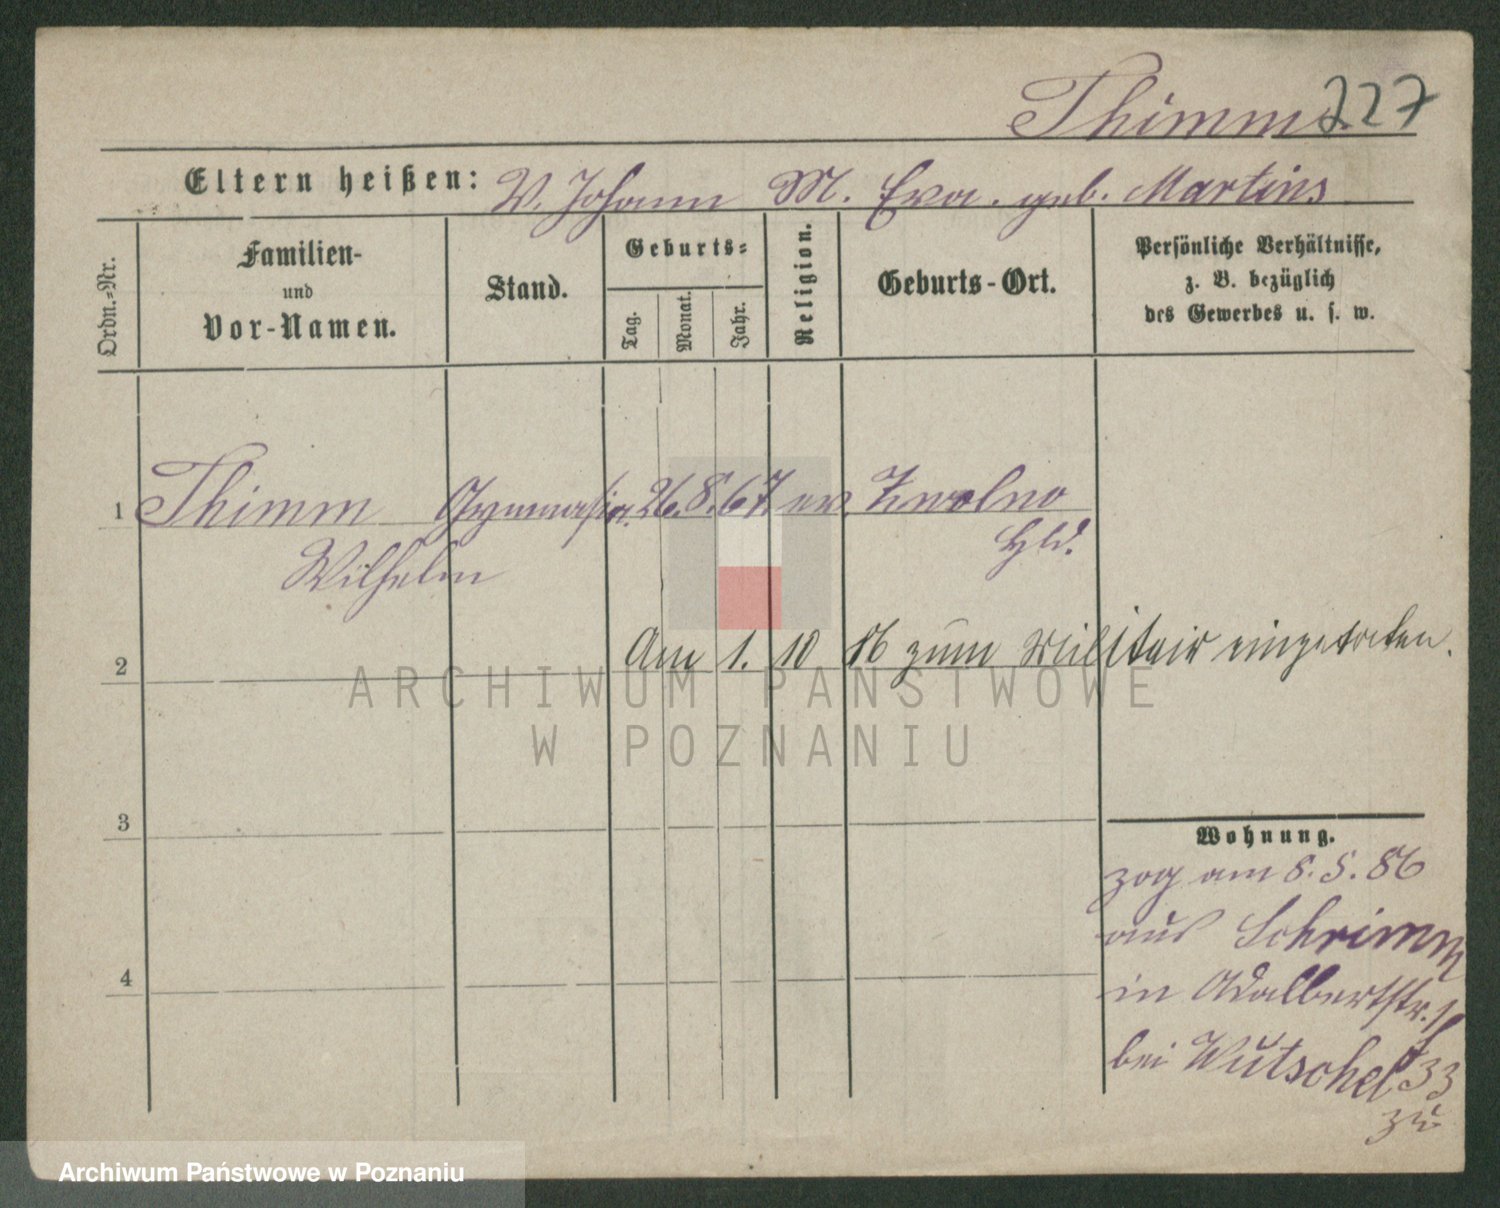 Thimm 227
Eltern heißen: V. Johann M. Eva. geb. Martins
Ordn.=Nr.
Familien-
und
Vor-Namen.
Stand.
Geburts=
Tag.
Monat.
Jahr.
Religion.
Geburts-Ort.
Persönliche Verhältnisse,
z. B. bezüglich
des Gewerbes u. s. w.
1 Thimm Gymnasia. 26. 8. 67. ev. Zwolno
Wilhelm Hld.
2 Am 1. 10 86 zum Militair eingetreten.
3
4
Wohnung.
zog am 8. 5. 86
aus Schrimm
in Adalbertstr.
bei Wutschel
33
zu
ARCHIWUM PAŃSTWOWE
W POZNANIU
Archiwum Państwowe w Poznaniu